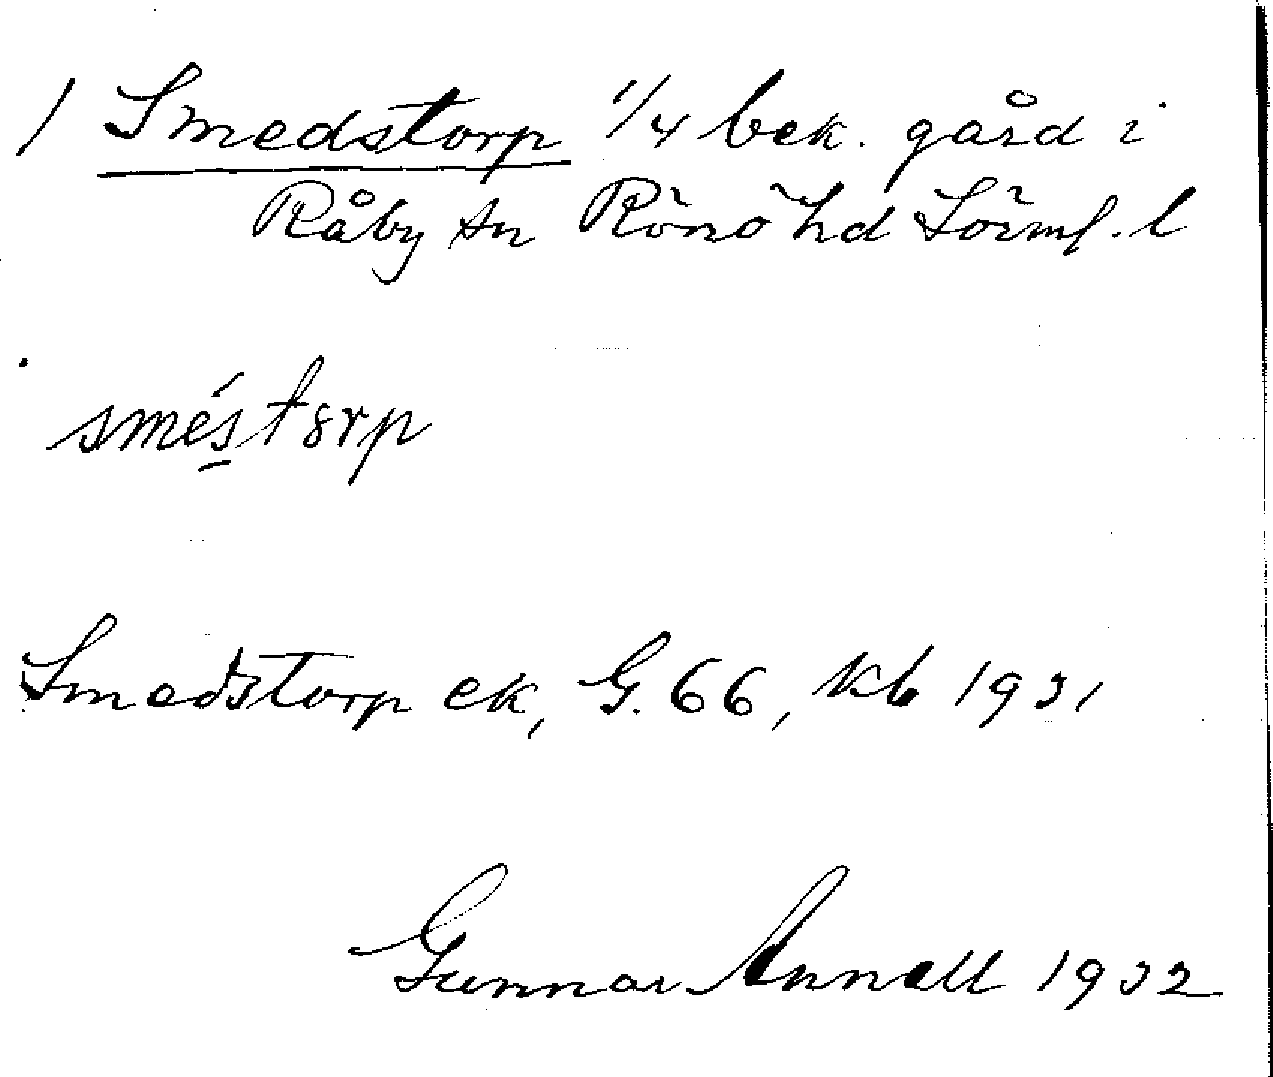 / Smedstorp 1/4 bek. gård i
Råby sn Rönö hd Sörml. l
smés̱tɔrp
Smedstorp ek, G. 66, kb 1931
Gunnar Annell 1932